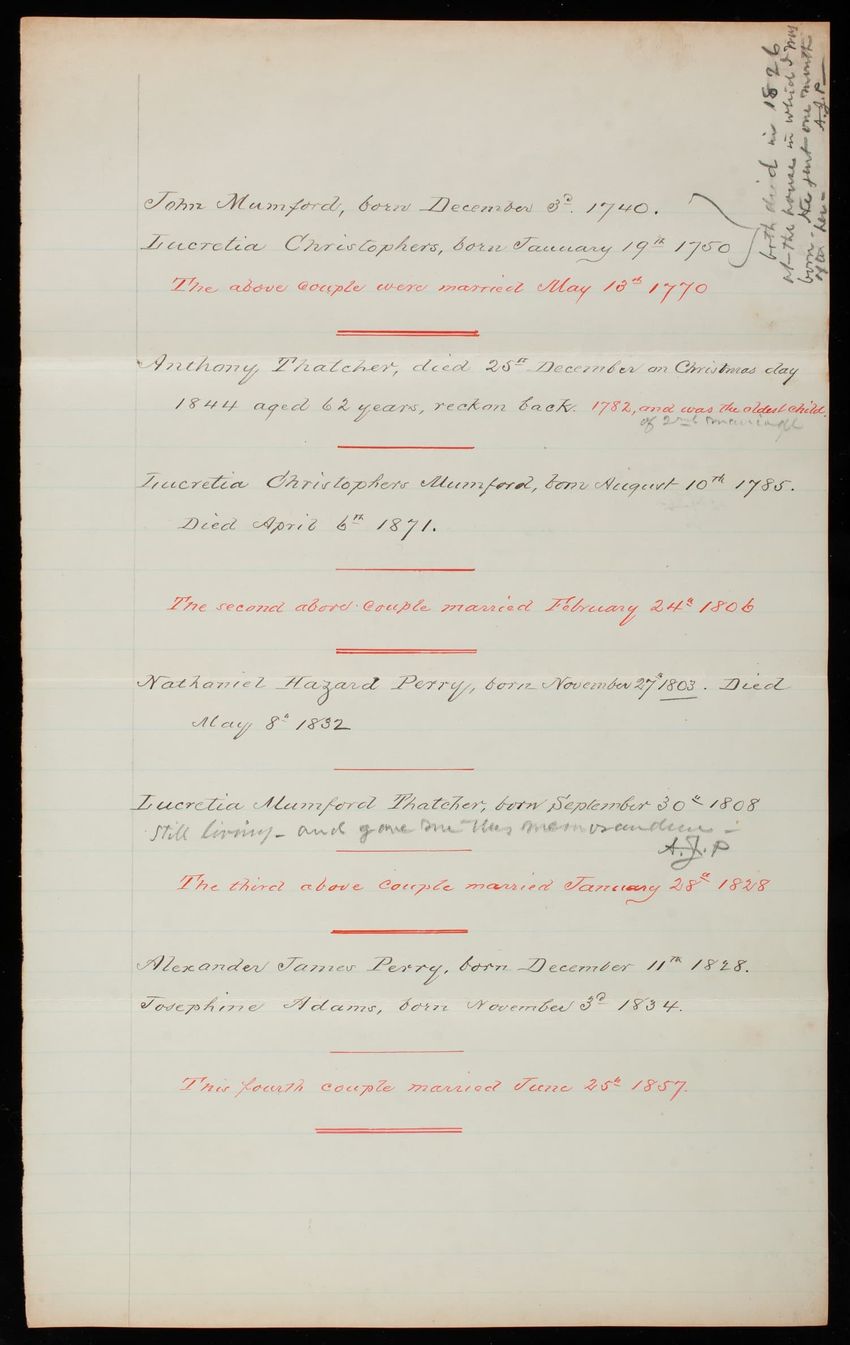 both died in 1826
at the house in which I was
born - the just one month
after her -
A.J.P.
John Mumford, born December 3d. 1740.
Lucretia Christophers, born January 19th 1750
The above couple were married May 13th 1770
Anthony Thatcher, died 25th December on Christmas day
1844 aged 62 years, reckon back. 1782, and was the oldest child.
of 2nd marriage
Lucretia Christophers Mumford, born August 10th 1785.
Died April 6th 1871.
The second above couple married February 24th 1806
Nathaniel Hazard Perry, born November 27th 1803. Died
May 8th 1832
Lucretia Mumford Thatcher, born September 30th 1808
Still living - and gave me this memorandum -
A.J.P
The third above couple married January 28th 1828
Alexander James Perry, born December 11th 1828.
Josephine Adams, born November 3d 1834.
This fourth couple married June 25th 1857.